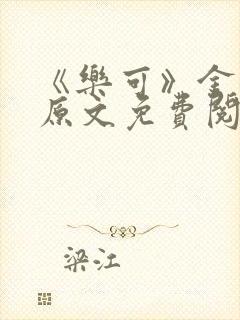 《樂可》全
原文免費閱
梁江